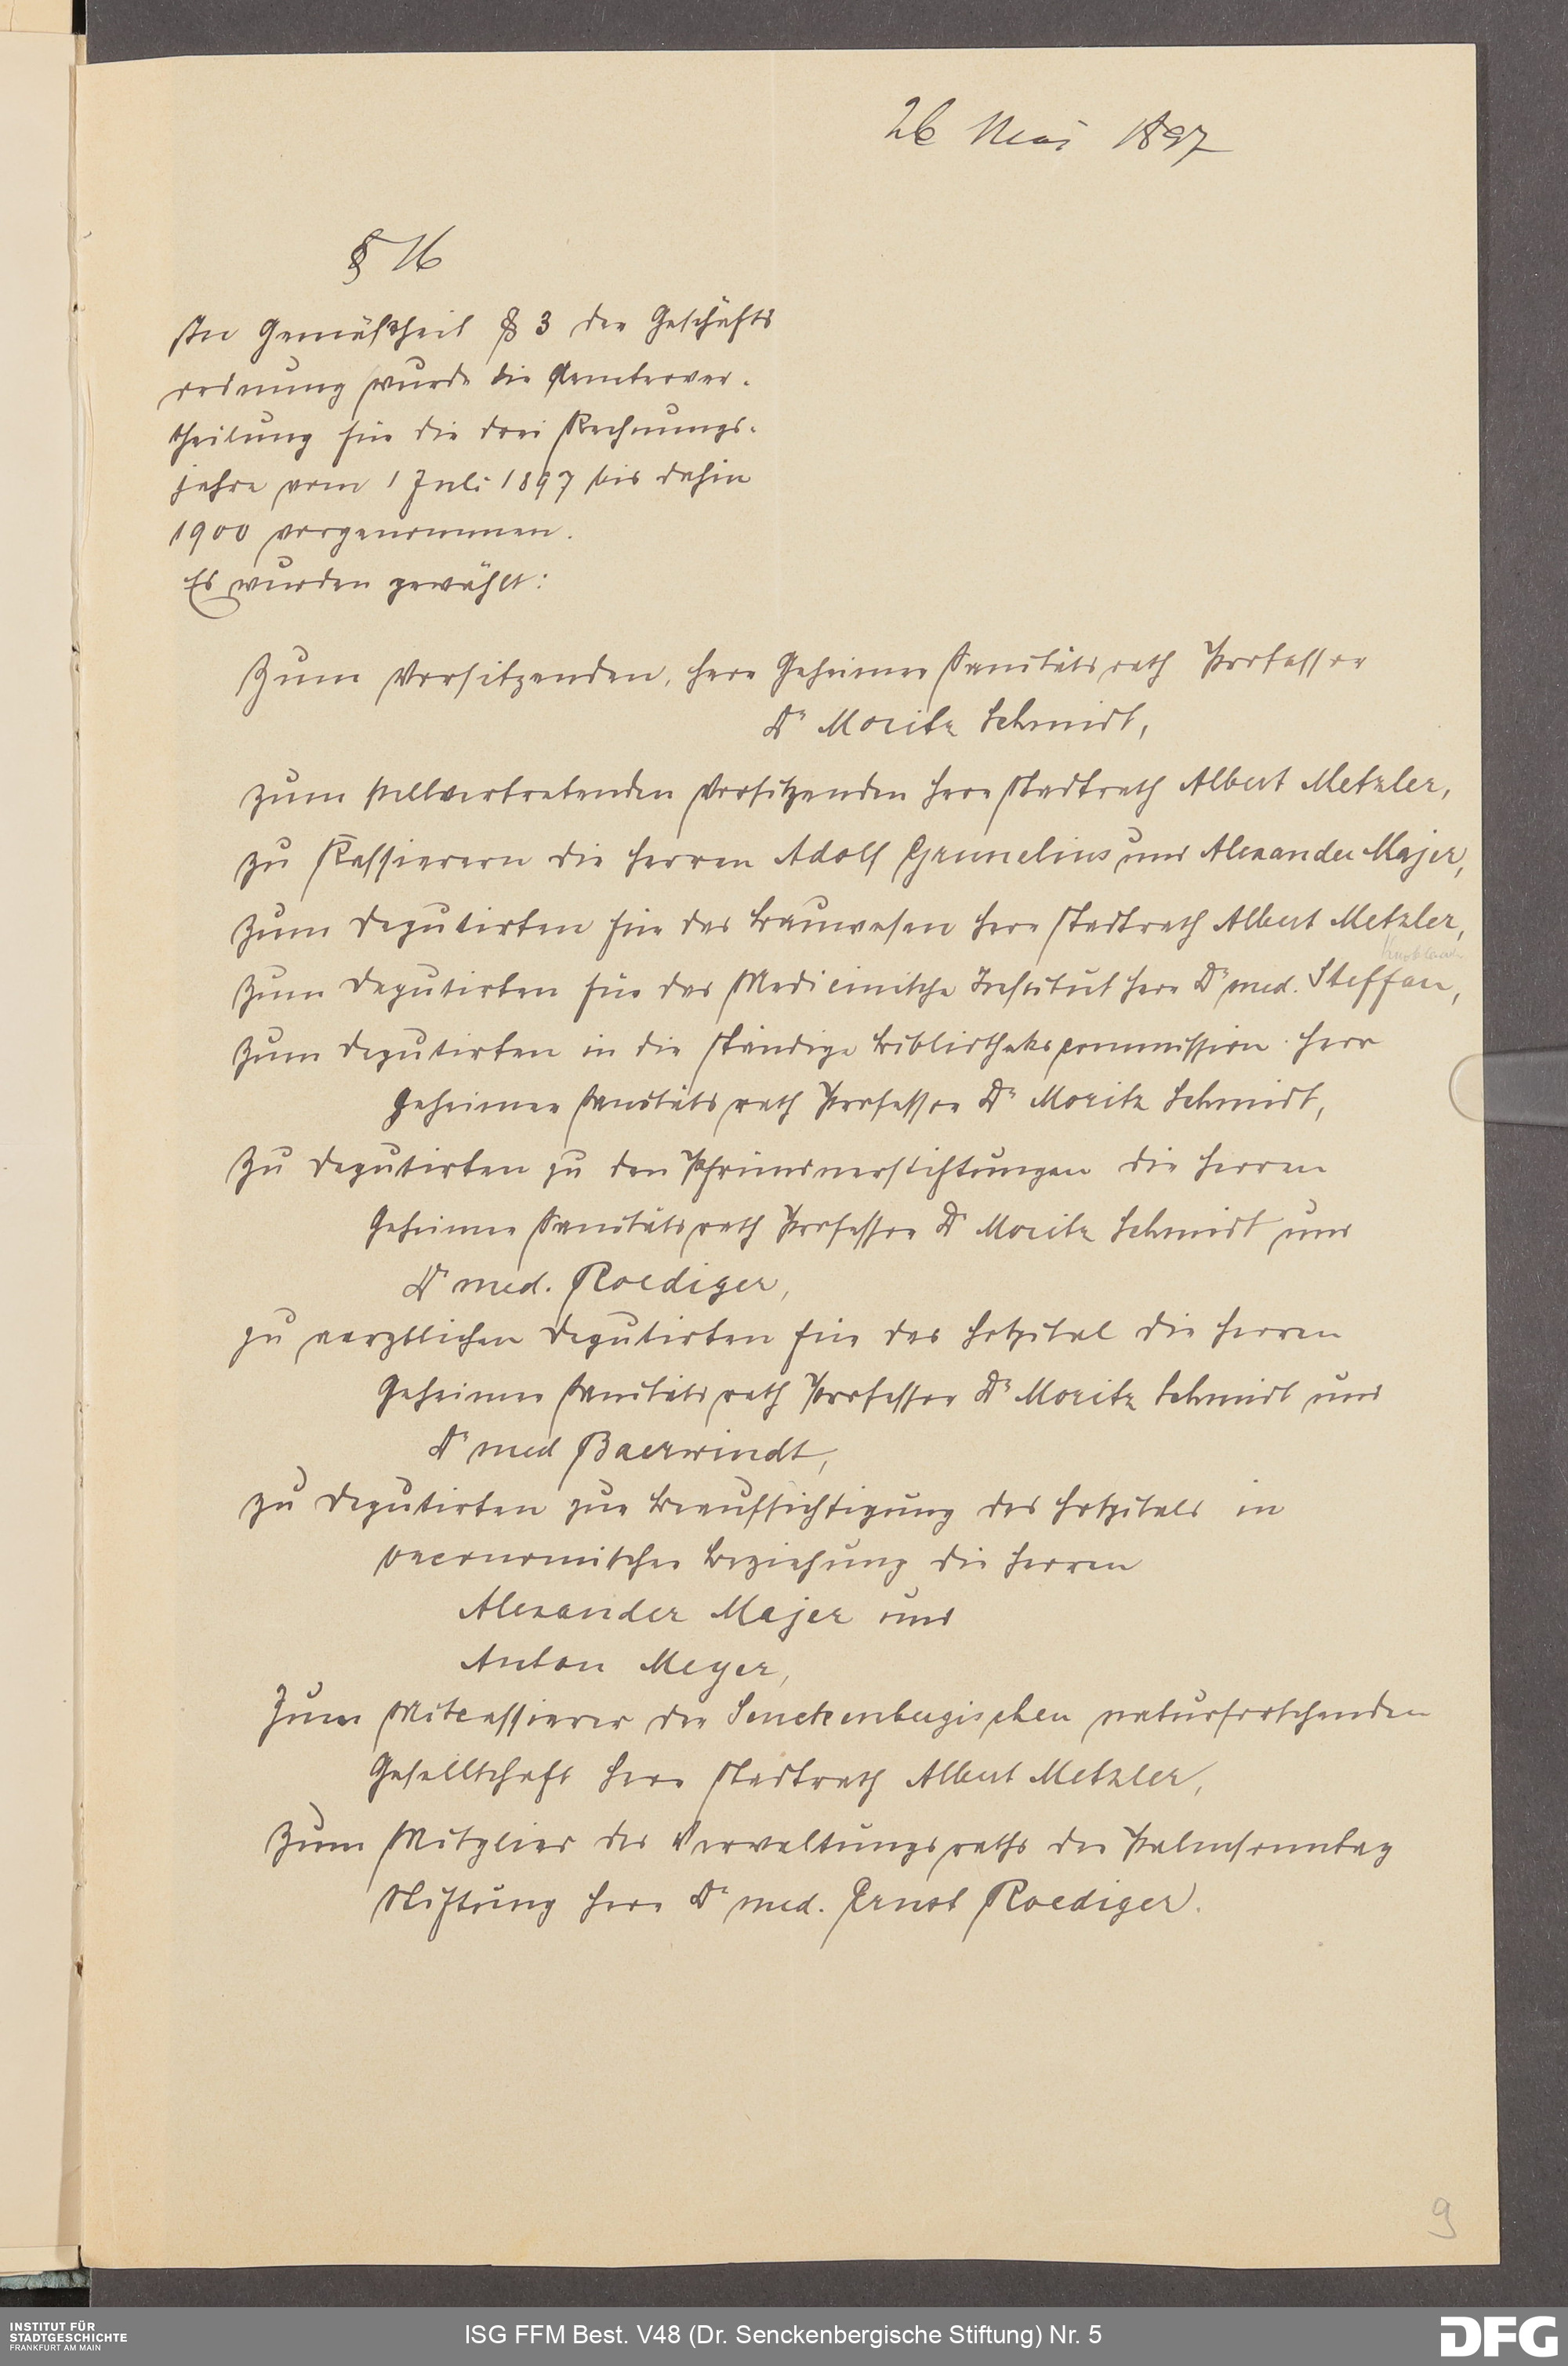 26 Mai 1897
§ 16
In Gemäßheit § 3 der Geschäfts
ordnung wurde die Aemterver-
theilung für die drei Rechnungs-
jahre vom 1 Juli 1897 bis dahin
1900 vorgenommen.
Es wurden gewählt:
Zum Vorsitzenden, Herr Geheimer Sanitätsrath Professor
Dr Moritz Schmidt,
zum stellvertretenden Vorsitzenden Herr Stadtrath Albert Metzler,
zu Kassierern die Herren Adolf Grunelius und Alexander Majer,
zum Deputirten für das Bauwesen Herr Stadtrath Albert Metzler,
Knoblauch
zum Deputirten für das Medicinische Institut Herr Dr med. Steffan,
zum Deputirten in die ständige Bibliothekscommission Herr
Geheimer Sanitätsrath Professor Dr Moritz Schmidt,
zu Deputirten zu den Pfründnerstiftungen die Herren
Geheimer Sanitätsrath Professor Dr Moritz Schmidt und
Dr med. Roediger,
zu aerztlichen Deputirten für das Hospital die Herren
Geheimer Sanitätsrath Professor Dr Moritz Schmidt und
Dr med Baerwindt,
zu Deputirten zur Beaufsichtigung des Hospitals in
oeconomischer Beziehung die Herren
Alexander Majer und
Anton Meyer,
Zum Mitcassierer der Senckenbergischen naturforschenden
Gesellschaft Herr Stadtrath Albert Metzler,
zum Mitglied des Verwaltungsraths der Palmsonntag
Stiftung Herr Dr med. Ernst Roediger.
9
INSTITUT FÜR
STADTGESCHICHTE
FRANKFURT AM MAIN
ISG FFM Best. V48 (Dr. Senckenbergische Stiftung) Nr. 5
DFG